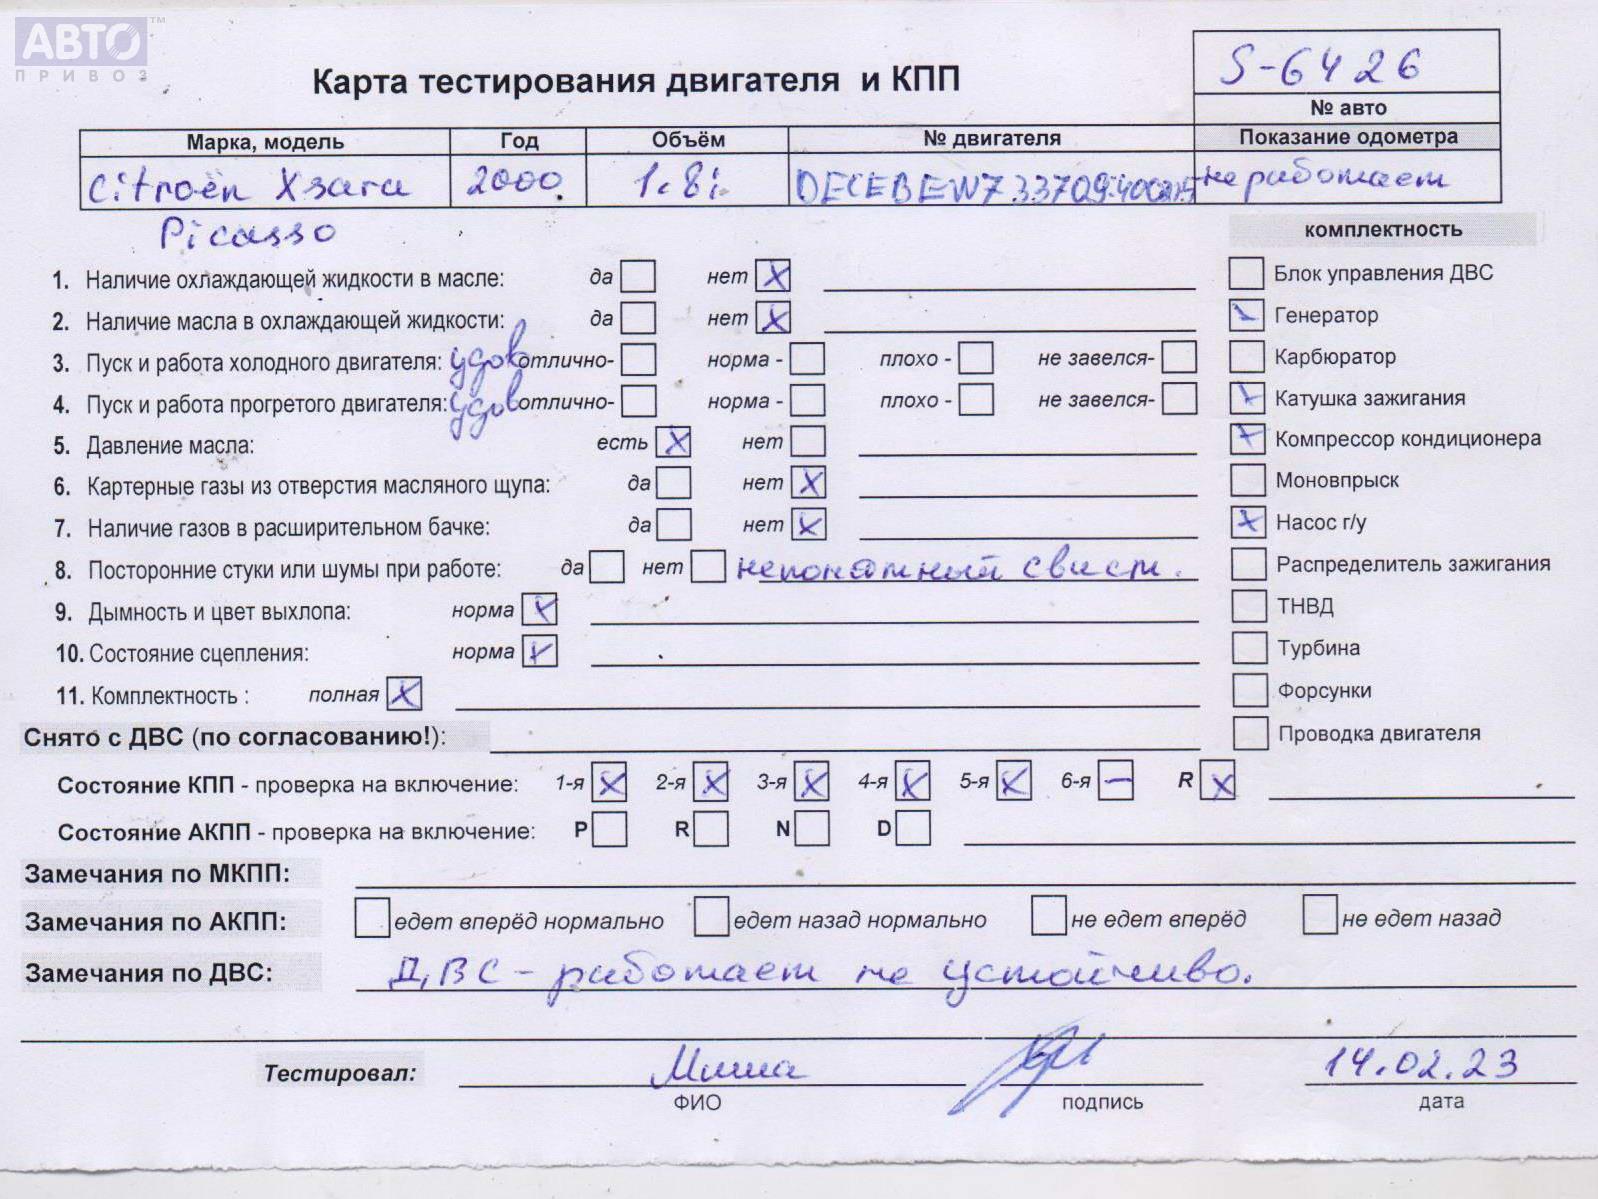 АВТО™
ПРИВОЗ
Карта тестирования двигателя и КПП
S-6426
№ авто
Марка, модель Год Объём № двигателя Показание одометра
Citroën Xsara 2000 1.8i не работает
Picasso
комплектность
1. Наличие охлаждающей жидкости в масле: да нет X
Блок управления ДВС
2. Наличие масла в охлаждающей жидкости: да нет X
Генератор
3. Пуск и работа холодного двигателя: удов отлично- норма - плохо - не завелся-
Карбюратор
4. Пуск и работа прогретого двигателя: удов отлично- норма - плохо - не завелся-
Катушка зажигания
5. Давление масла: есть X нет
Компрессор кондиционера
6. Картерные газы из отверстия масляного щупа: да нет X
Моновпрыск
7. Наличие газов в расширительном бачке: да нет X
Насос г/у
8. Посторонние стуки или шумы при работе: да нет непонятный свист.
Распределитель зажигания
9. Дымность и цвет выхлопа: норма X
ТНВД
10. Состояние сцепления: норма X
Турбина
11. Комплектность : полная X
Форсунки
Снято с ДВС (по согласованию!):
Проводка двигателя
Состояние КПП - проверка на включение: 1-я X 2-я X 3-я X 4-я X 5-я X 6-я – R X
Состояние АКПП - проверка на включение: P R N D
Замечания по МКПП:
Замечания по АКПП: едет вперёд нормально едет назад нормально не едет вперёд не едет назад
Замечания по ДВС: ДВС - работает не устойчиво.
Тестировал: Миша 14.02.23
ФИО подпись дата